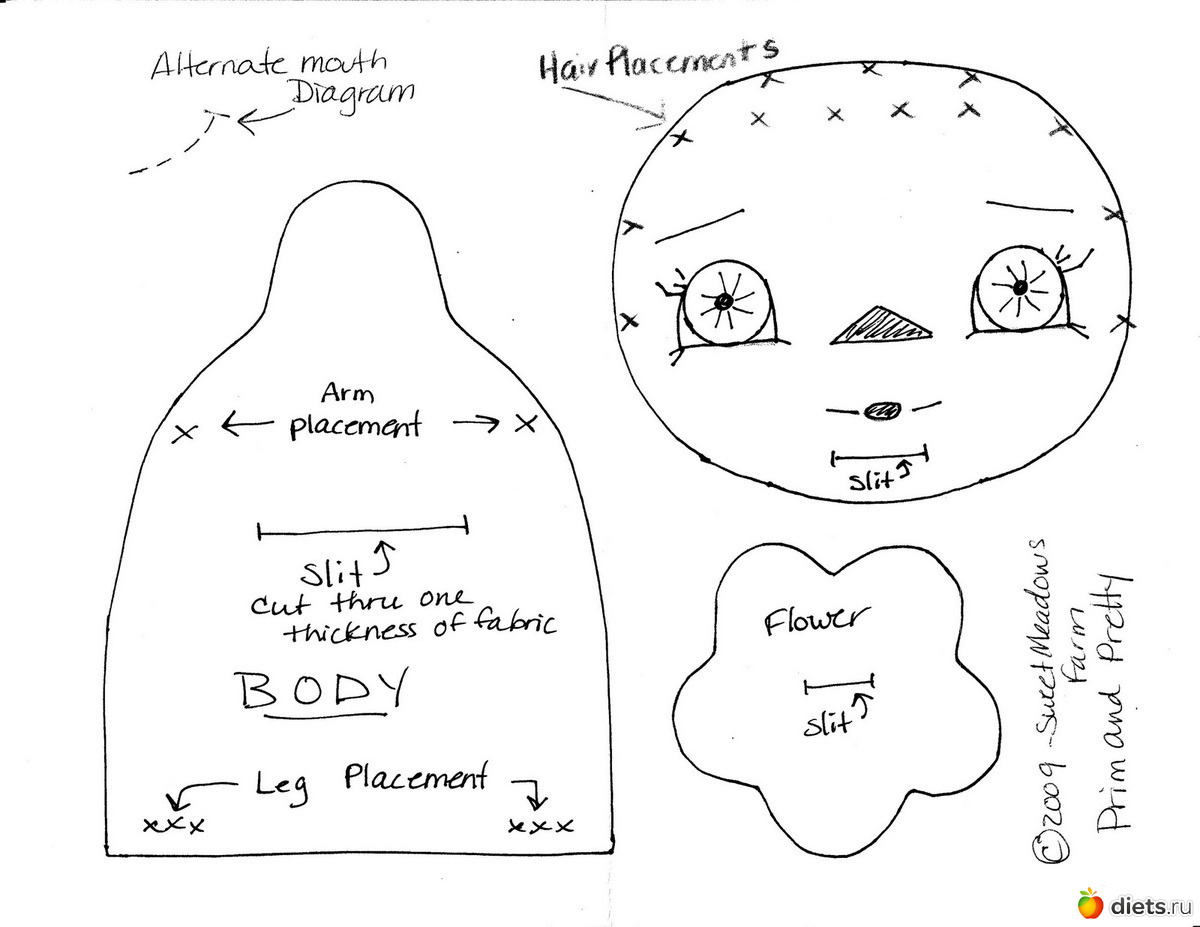 Alternate mouth
Diagram
Hair Placements
Arm
placement
slit
cut thru one
thickness of fabric
BODY
Leg Placement
xxx
xxx
slit
Flower
slit
©2009 - Sweet Meadows
Farm
Prim and Pretty
diets.ru